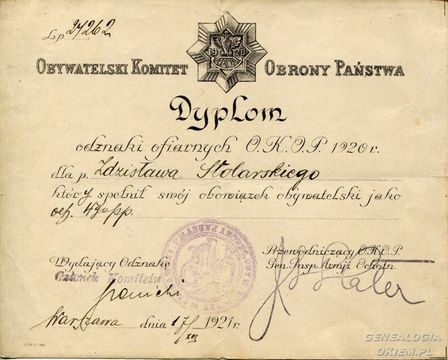 Lp 24262
OBYWATELSKI KOMITET OBRONY PAŃSTWA
DYPLOM
odznaki ofiarnych O.K.O.P. 1920 r.
dla p. Zdzisława Stolarskiego
który spełnił swój obowiązek obywatelski jako
Wydający Odznakę
Przewodniczący O.K.O.P.
Członek Komitetu
Gen. Insp. Armji Ochotn.
Warszawa dnia 17/XII 1921 r.
GENEALOGIA
OKIEM.PL